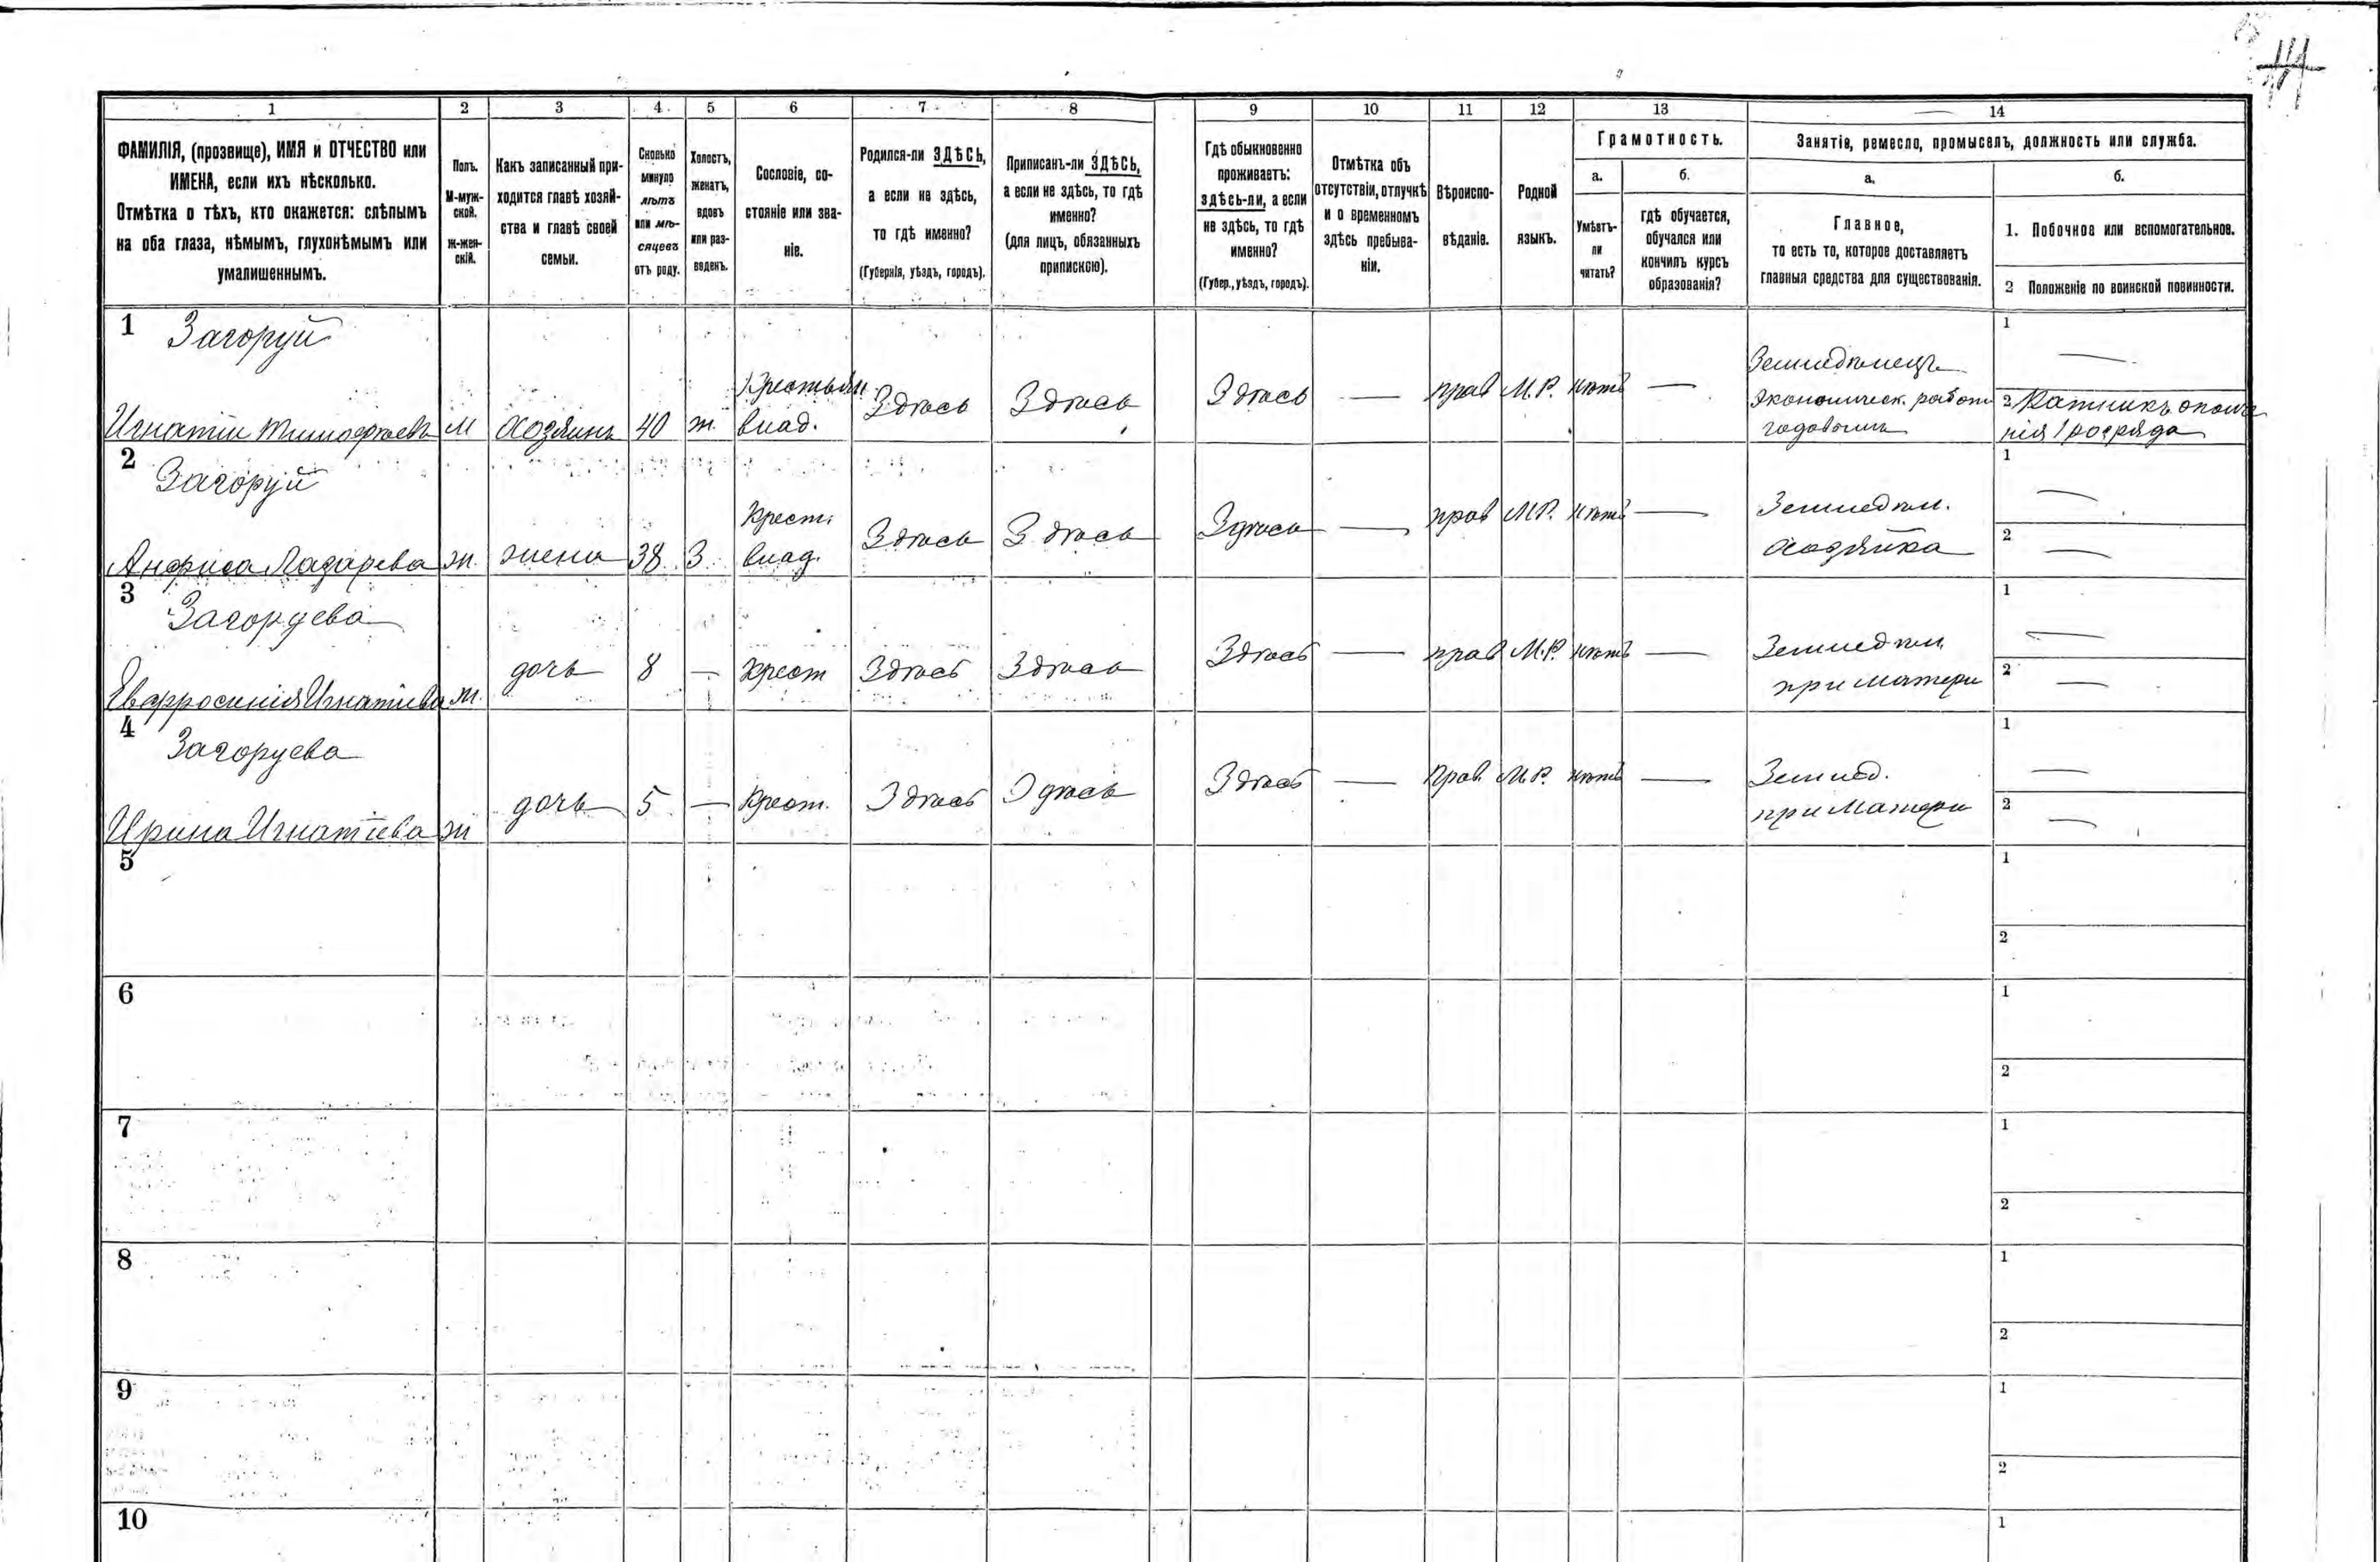 1 2 3 4 5 6 7 8 9 10 11 12 13 14
ФАМИЛІЯ, (прозвище), ИМЯ и ОТЧЕСТВО или
ИМЕНА, если ихъ нѣсколько.
Отмѣтка о тѣхъ, кто окажется: слѣпымъ
на оба глаза, нѣмымъ, глухонѣмымъ или
умалишеннымъ.
Полъ.
М-муж-
ской.
ж-жен-
скій.
Какъ записанный при-
ходится главѣ хозяй-
ства и главѣ своей
семьи.
Сколько
минуло
лѣтъ
или мѣ-
сяцевъ
отъ роду.
Холостъ,
женатъ,
вдовъ
или раз-
веденъ.
Сословіе, со-
стояніе или зва-
ніе.
Родился-ли ЗДѢСЬ,
а если не здѣсь,
то гдѣ именно?
(Губернія, уѣздъ, городъ).
Приписанъ-ли ЗДѢСЬ,
а если не здѣсь, то гдѣ
именно?
(для лицъ, обязанныхъ
припискою).
Гдѣ обыкновенно
проживаетъ:
здѣсь-ли, а если
не здѣсь, то гдѣ
именно?
(Губер., уѣздъ, городъ).
Отмѣтка объ
отсутствіи, отлучкѣ
и о временномъ
здѣсь пребыва-
ніи.
Вѣроиспо-
вѣданіе.
Родной
языкъ.
Грамотность.
а.
Умѣетъ-
ли
читать?
б.
гдѣ обучается,
обучался или
кончилъ курсъ
образованія?
Занятіе, ремесло, промыселъ, должность или служба.
а.
Главное,
то есть то, которое доставляетъ
главныя средства для существованія.
б.
1. Побочное или вспомогательное.
2 Положеніе по воинской повинности.
1 Загоруй
Игнатій Тимофѣевъ М хозяинъ 40 ж.
Крестьян.
влад.
Здѣсь Здѣсь Здѣсь — прав М.Р. нѣтъ —
Земледѣлецъ
Экономическ. работн
годовымъ
1 —
2 Ратникъ ополче
нія 1 розряда
2 Загоруй
Анфиса Лазарева ж. жена 38 З.
Крест.
влад.
Здѣсь Здѣсь Здѣсь — прав М.Р. нѣтъ —
Земледѣл.
хозяйка
1 —
2 —
3 Загоруева
Евфросинія Игнатіева ж. дочь 8 — Крест Здѣсь Здѣсь Здѣсь — прав М.Р. нѣтъ —
Земледѣл.
при матери
1 —
2 —
4 Загоруева
Ирина Игнатіева ж дочь 5 — Крест. Здѣсь Здѣсь Здѣсь — Прав. М.Р. нѣтъ —
Землед.
при матери
1 —
2 —
5
1
2
6
1
2
7
1
2
8
1
2
9
1
2
10
1